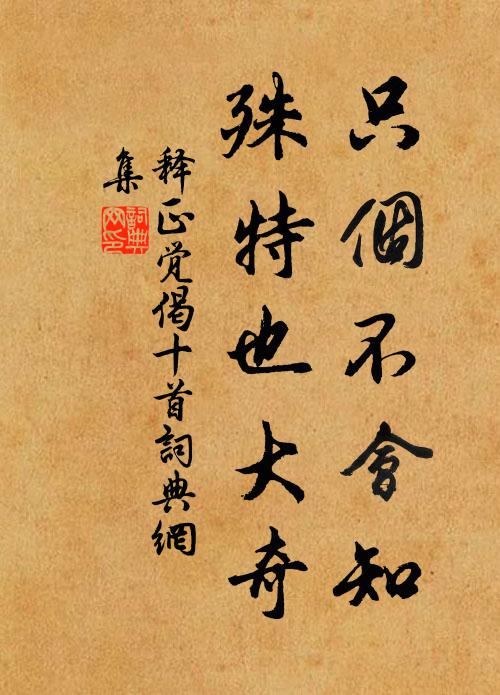 只個不會知
殊特也大奇
释正觉偈十首詞典網
集
詞典
网印